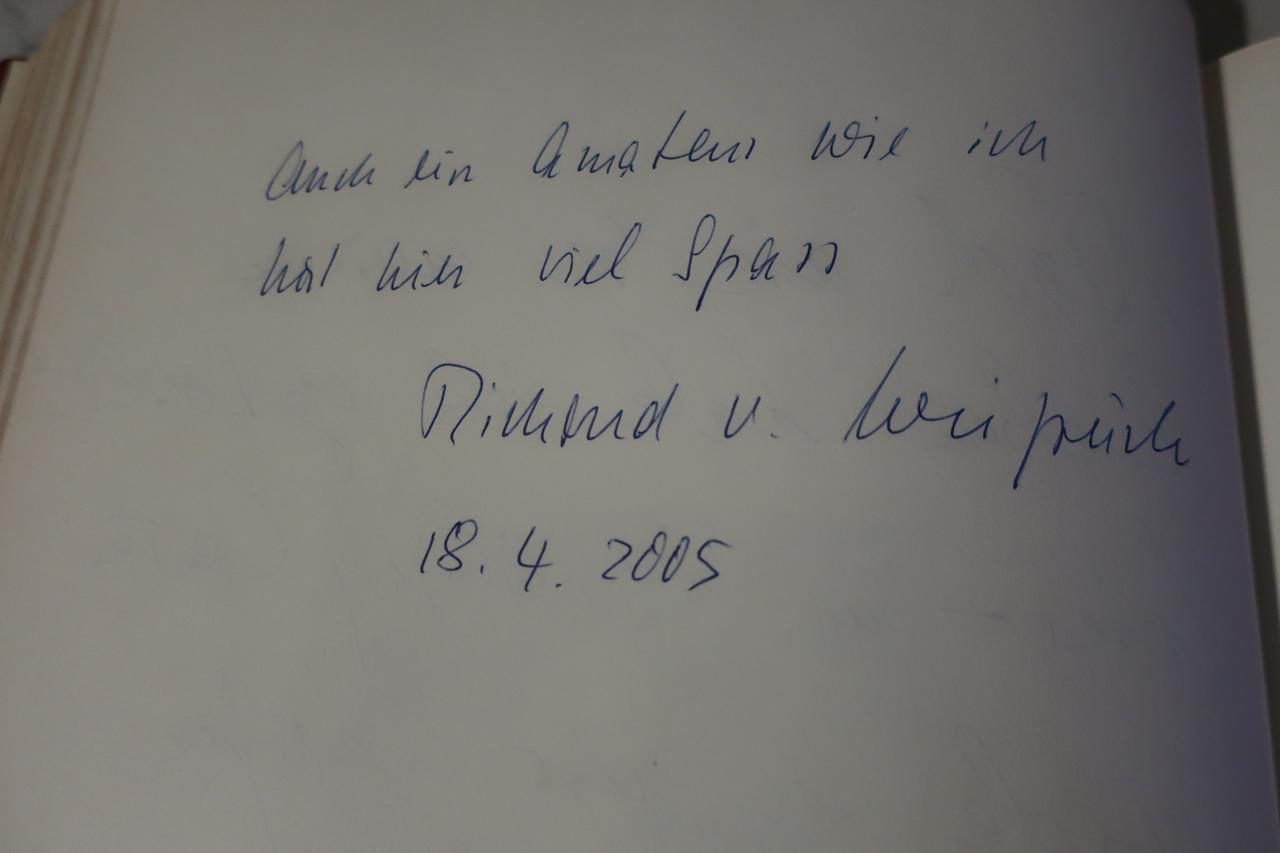 Auch ein Amateur wie ich
hat hier viel Spass
Richard v.
18.4.2005